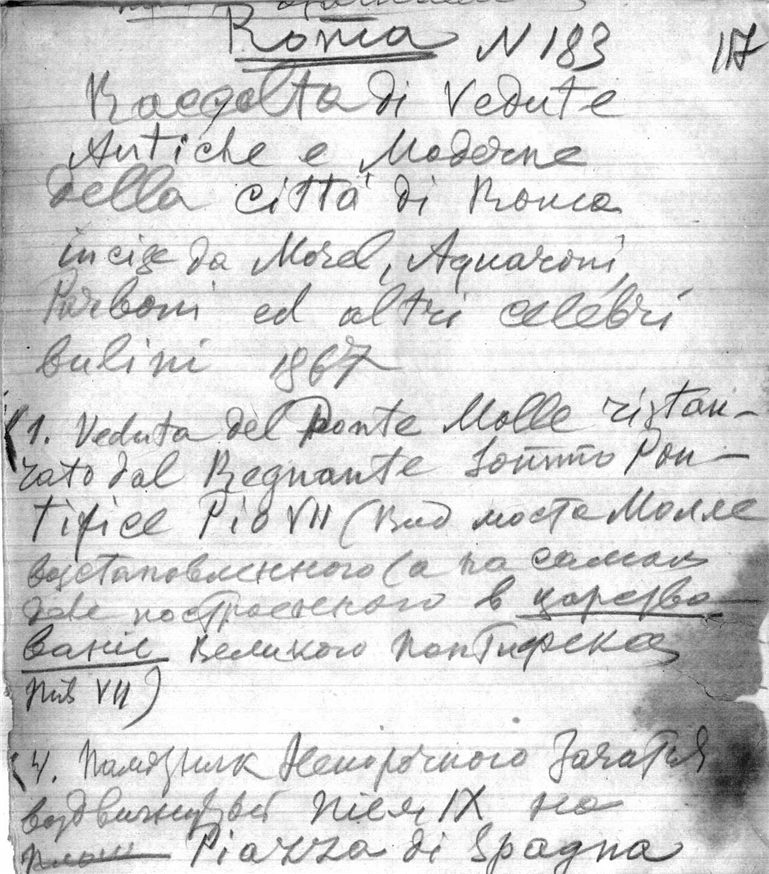 Roma N 183 117
Raccolta di Vedute
Antiche e Moderne
della città di Roma
incise da Morel, Aquaroni,
Parboni ed altri celebri
bulini 1867
1. Veduta del Ponte Molle ristau-
rato dal Regnante Sommo Pon-
tifice Pio VII (Вид моста Молле
возстановленного (а на самом
деле построенного в царство-
вание Великого понтифекса
Пия VII)
4. Памятник Непорочного Зачатия
воздвигнутый Пием IX на
Piazza di Spagna